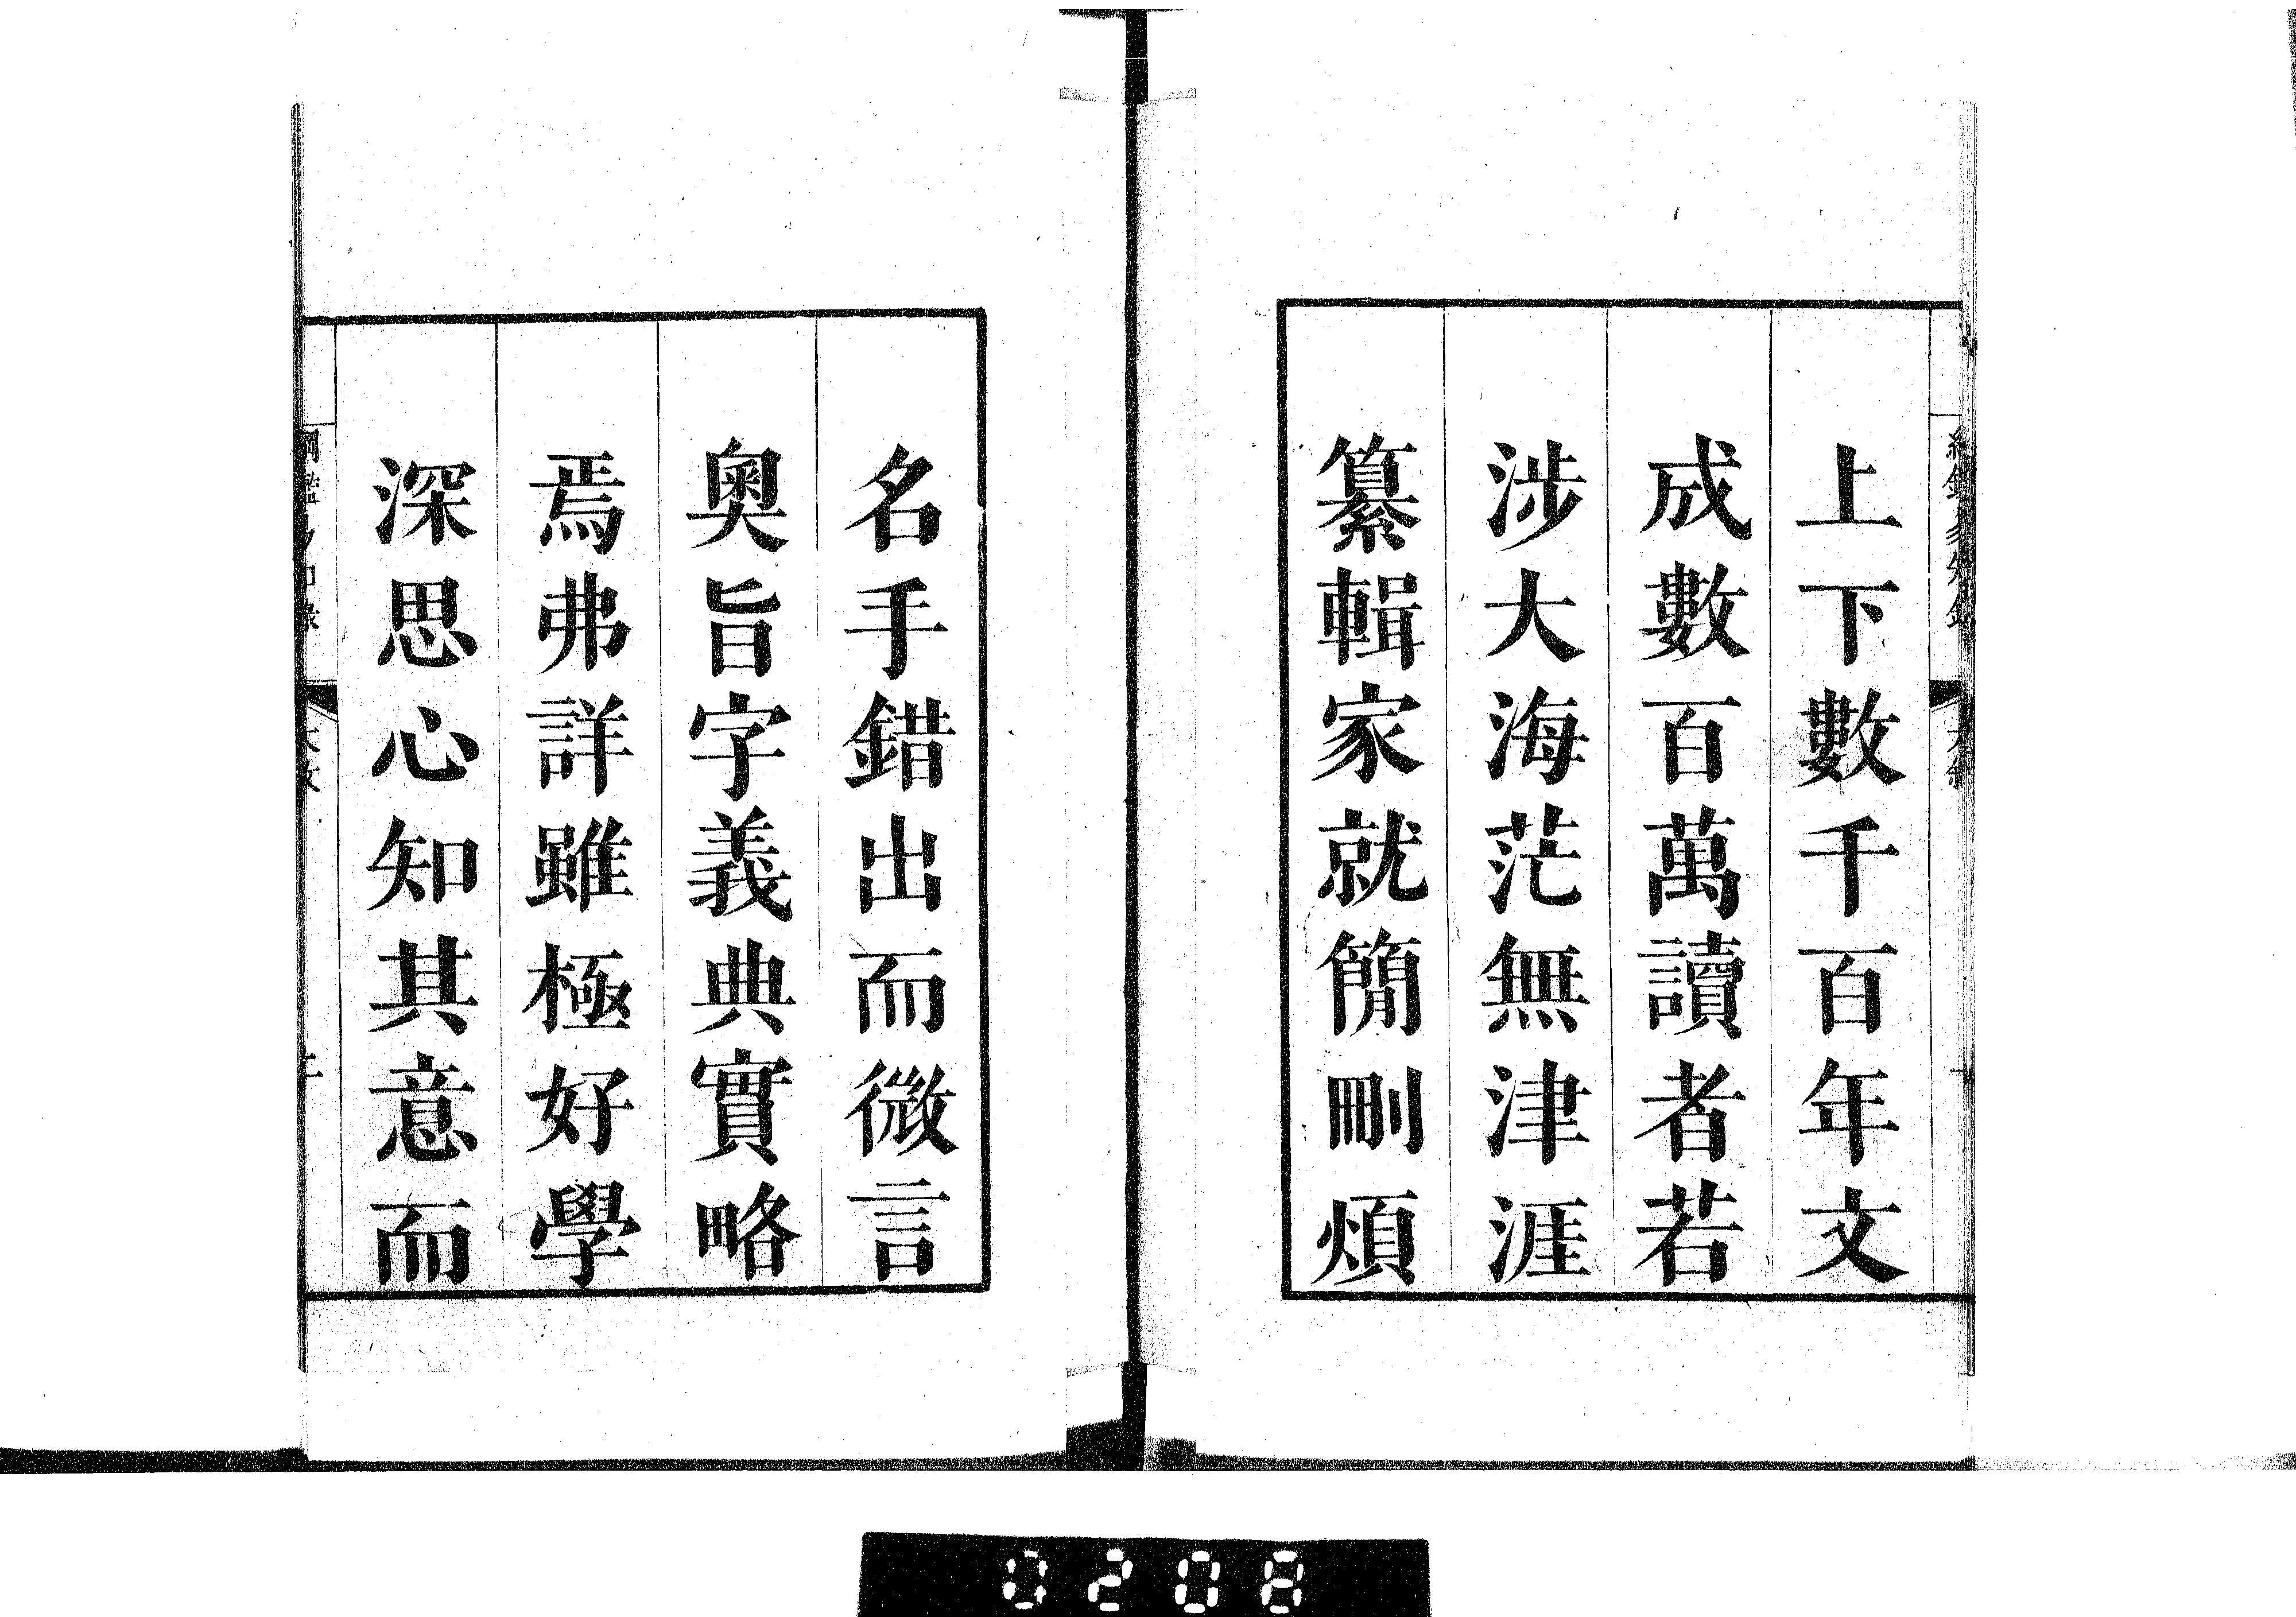 上下數千百年文
成數百萬讀者若
涉大海茫無津涯
纂輯家就簡刪煩
名手錯出而微言
奥旨字義典實略
焉弗詳雖極好學
深思心知其意而
0208